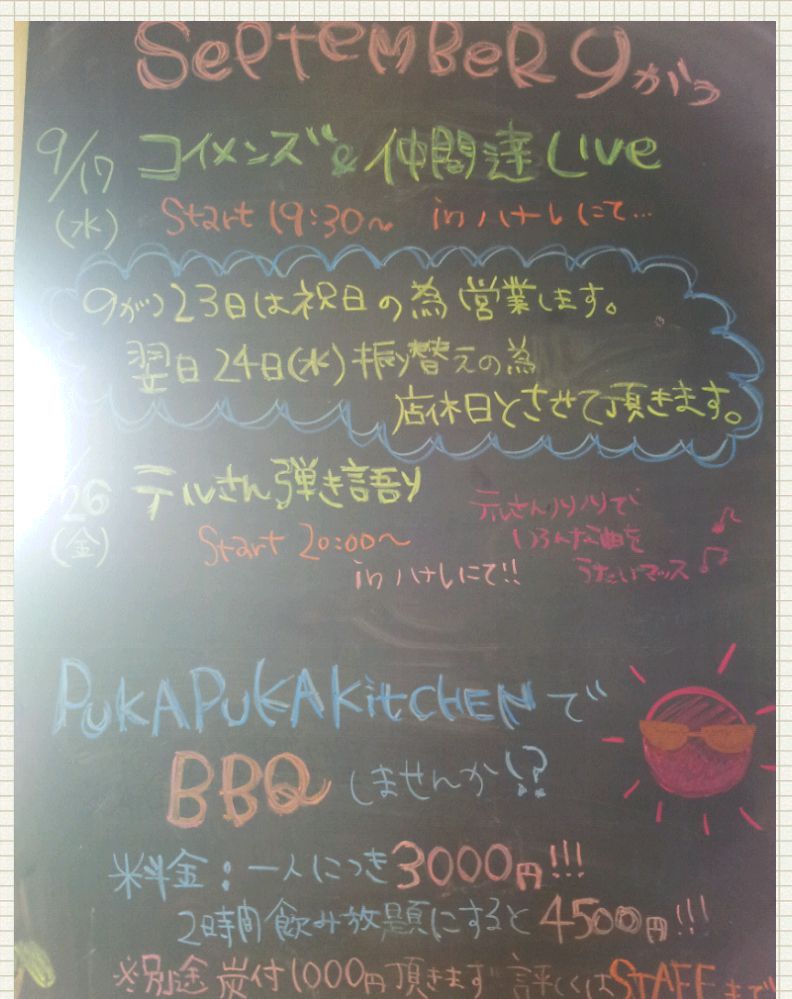 SEPTEMBER 9がつ
9/17 コイメンズ&仲間達 Live
(水) Start 19:30〜 in ハナレにて...
9がつ23日は祝日の為 営業します。
翌日 24日(水)振り替えの為
店休日とさせて頂きます。
26 テルさん 弾き語り
(金) Start 20:00〜
in ハナレにて!!
テルさんノリノリで
いろんな曲を
うたいマッス
PUKAPUKA KitCHEN で
BBQ しませんか!?
料金:一人につき3000円!!!
2時間飲み放題にすると4500円!!!
※別途 炭付1000円頂きます 詳しくはSTAFFまで